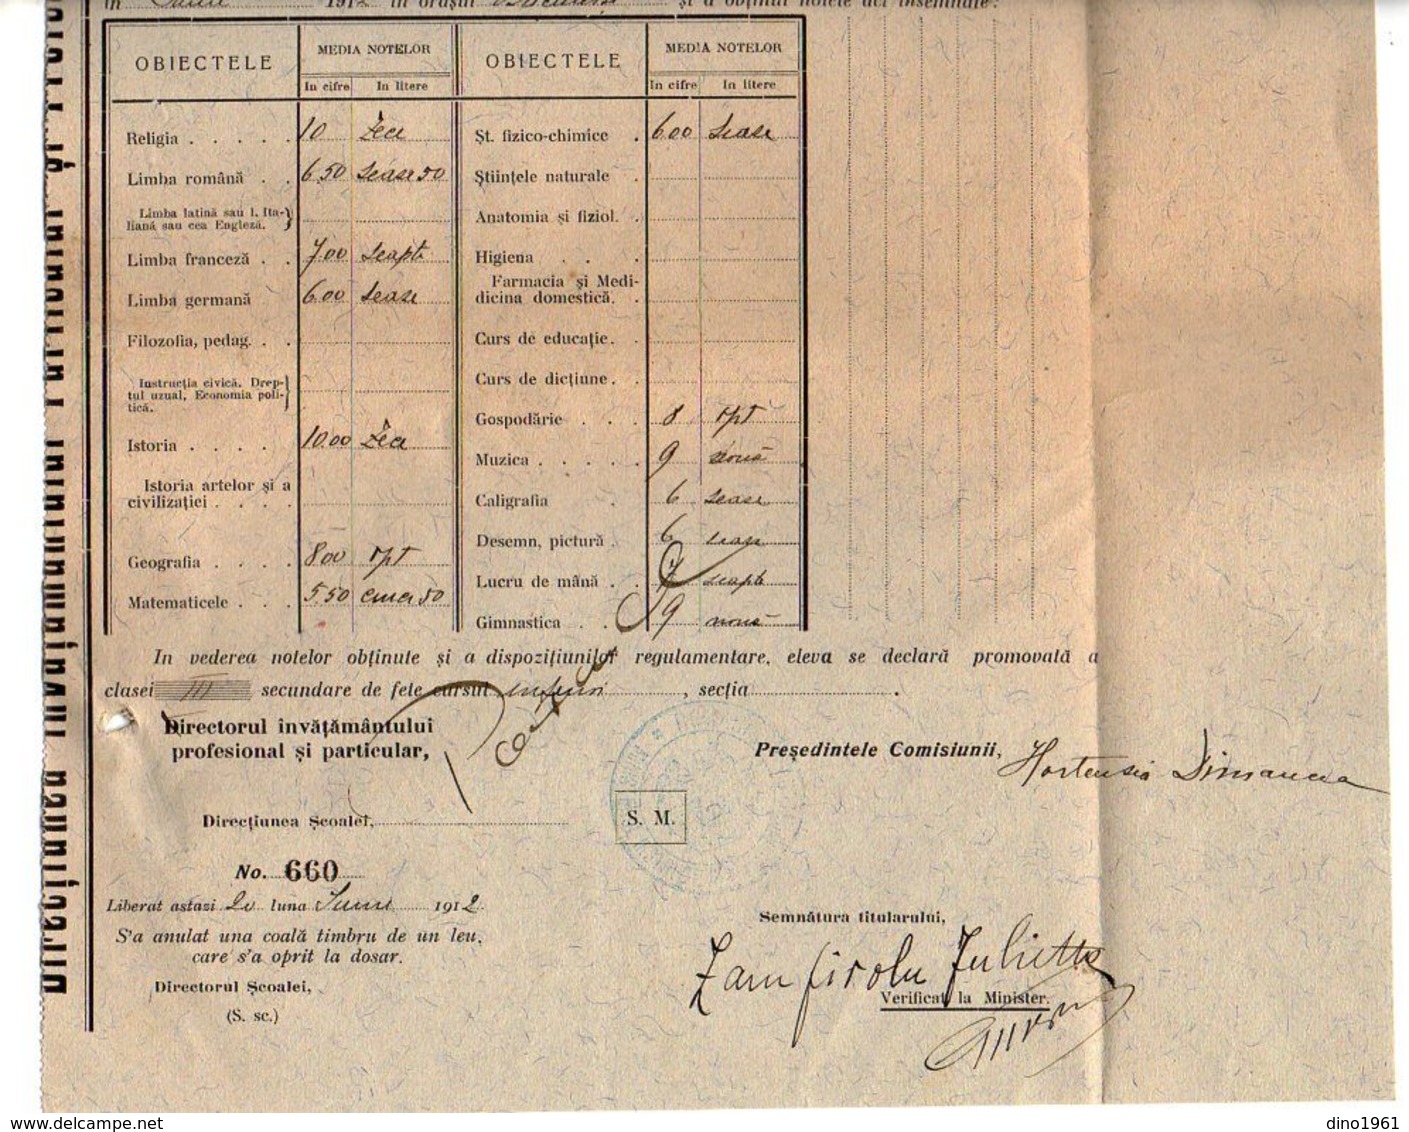 în Iunie 1912 în orașul București și a obținut notele aci însemnate:
OBIECTELE MEDIA NOTELOR OBIECTELE MEDIA NOTELOR
In cifre In litere In cifre In litere
Religia . . . . . 10 Zece
Șt. fizico-chimice . 6.00 șease
Limba română . . 6.50 șease 50
Științele naturale .
Limba latină sau l. Ita-
liană sau cea Engleză.
Anatomia și fiziol. .
Limba franceză . . 7.00 șeapte
Higiena . . .
Limba germană 6.00 șease
Farmacia și Medi-
dicina domestică. .
Filozofia, pedag. . .
Curs de educație. .
Instrucția civică. Drep-
tul uzual, Economia poli-
tică.
Curs de dicțiune. .
Gospodărie . . . 8 opt
Istoria . . . . 10.00 Zece
Muzica . . . . . 9 nouă
Istoria artelor și a
civilizației . . . .
Caligrafia . 6 șease
Desemn, pictură . 6 șease
Geografia . . . . 8.00 opt
Lucru de mână . . 7 șeapte
Matematicele . . . 5.50 cinci 50
Gimnastica . . 9 nouă
In vederea notelor obținute și a dispozițiunilor regulamentare, eleva se declară promovată a
clasei III secundare de fete cursul inferior , secția .
Directorul învățământului
profesional și particular,
Președintele Comisiunii, Hortensia
Direcțiunea Școalei,
S. M.
No. 660
Liberat astazi 20 luna Iunie 1912
S'a anulat una coală timbru de un leu,
care s'a oprit la dosar.
Directorul Școalei,
(S. sc.)
Semnătura titularului,
Zamfirolu Juliette
Verificat la Minister.
delcampe.net
dino1961